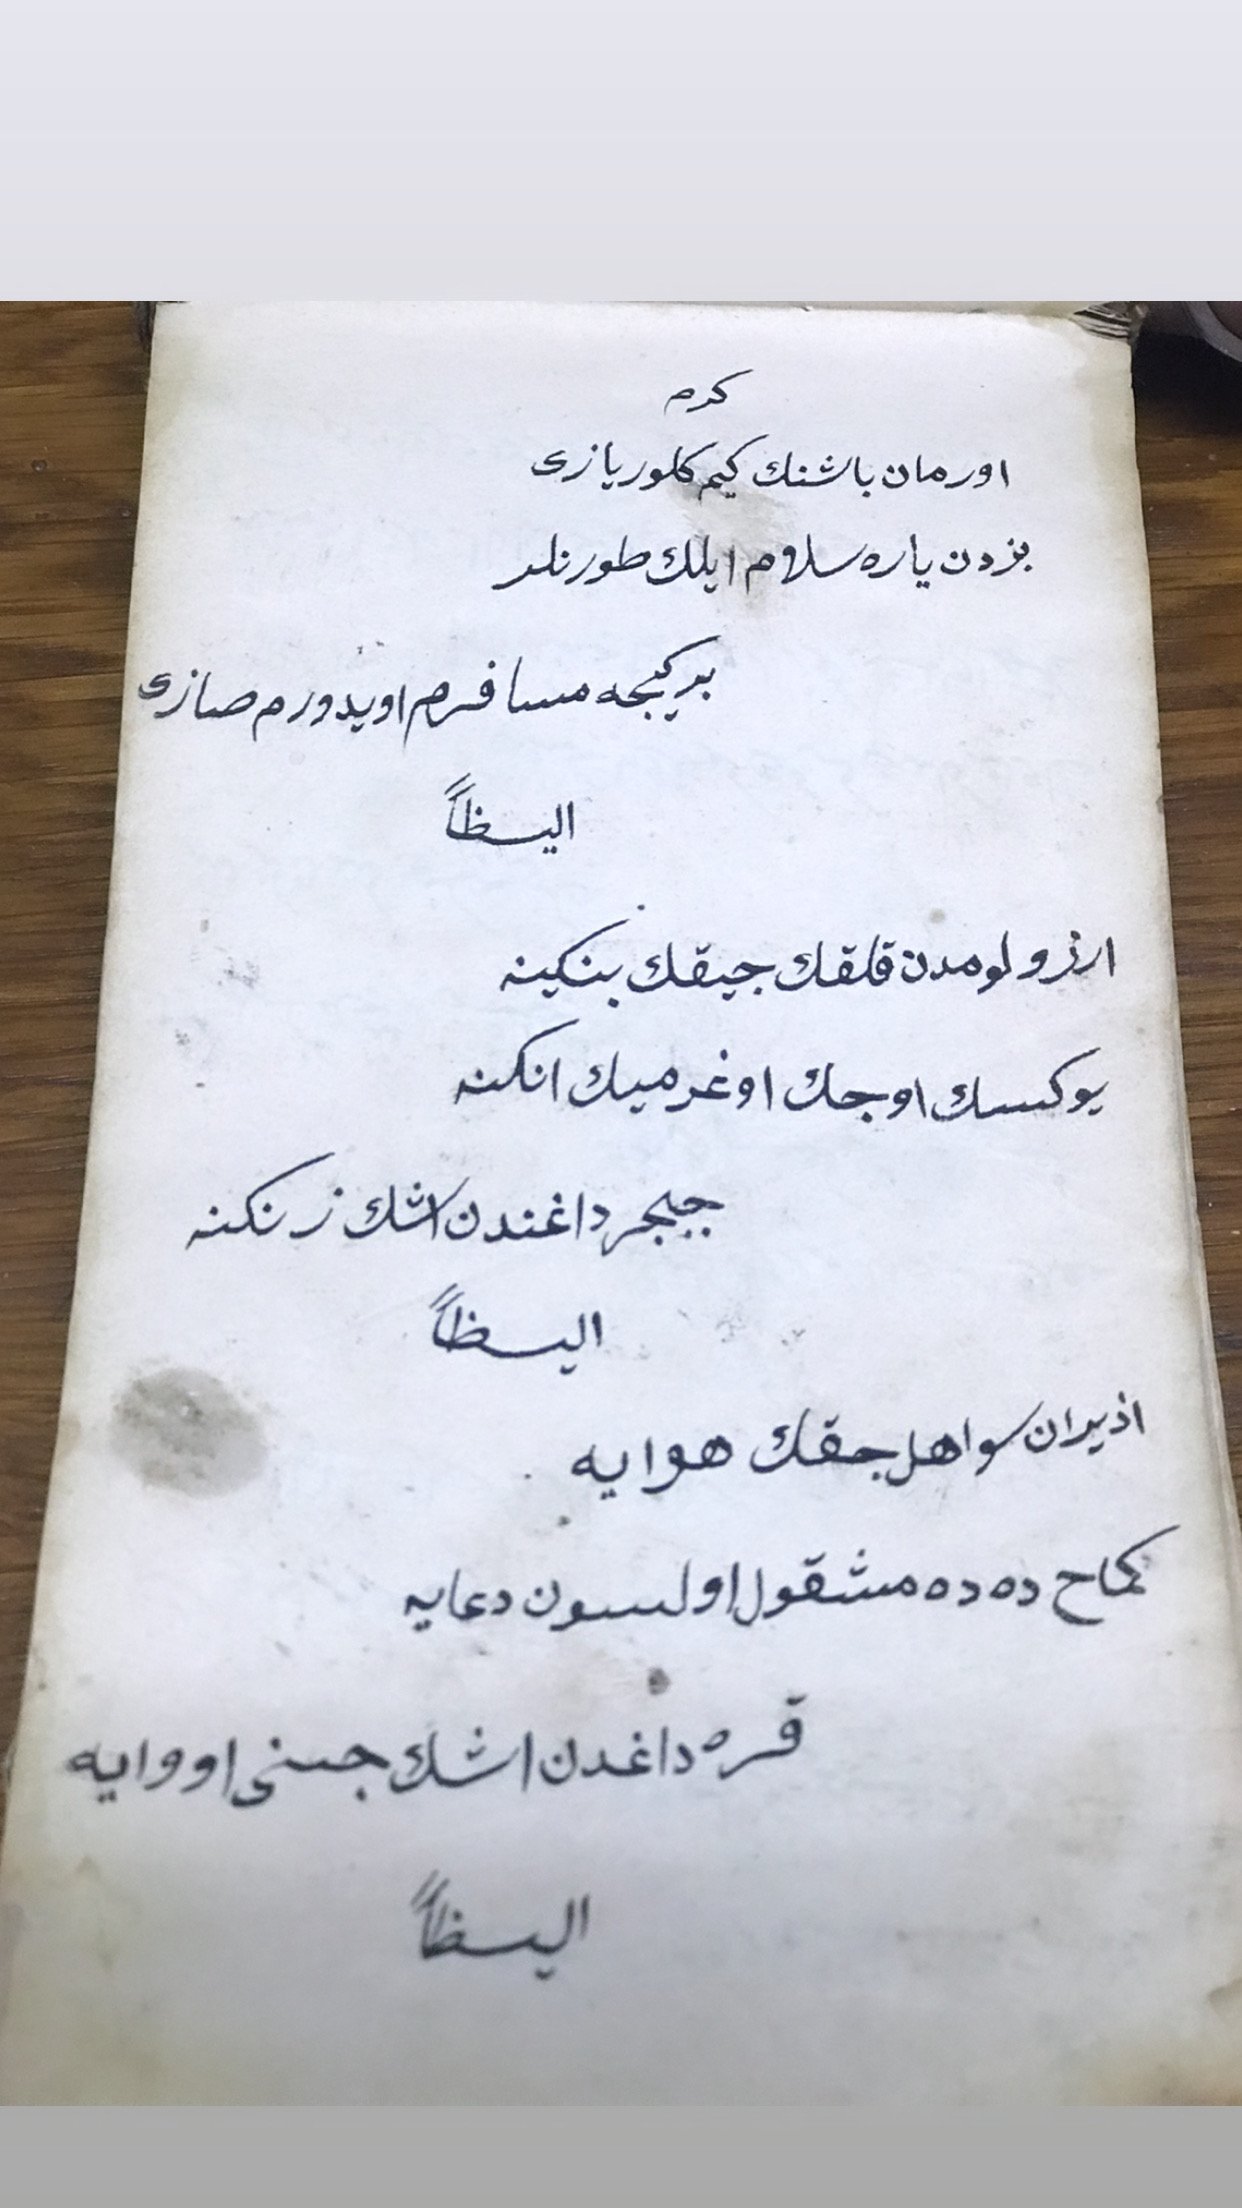 كرم
اورمان باشنك كيم كلور يازى
بزدن ياره سلام ايلك طورنلر
بر كيجه مسافرم اويدورم صازى
اليظاً
ارزولومدن قلقك جيقك بنكينه
يوكسك اوجك اوغرميك انكنه
جيلجر داغندن اشك زنكنه
اليظاً
اذيران سواهل جقك هوايه
كماح ده ده مشقول اولسون دعايه
قره داغدن اشك جسنى اووايه
اليظاً